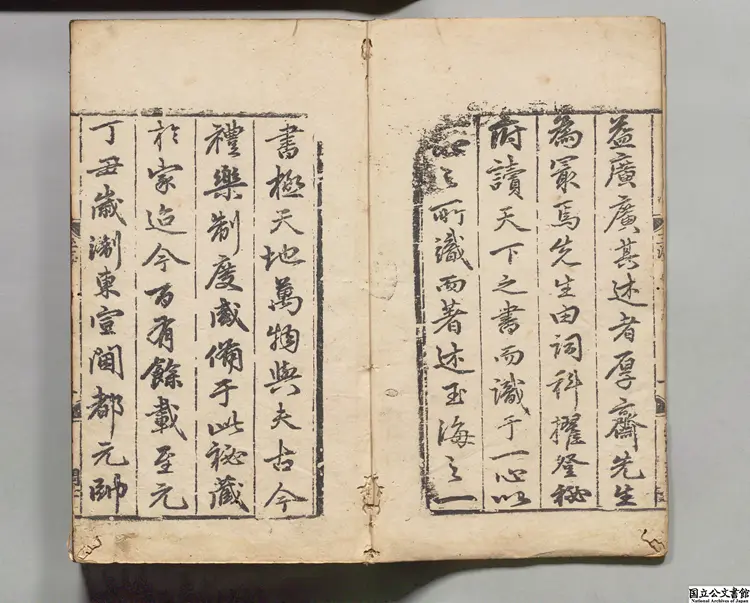 益廣廣其述者厚齋先生
為最焉先生由詞科擢登秘
府讀天下之書而識于一心以
心之所識而著述玉海之一
書極天地萬物與夫古今
禮樂制度咸備于此秘藏
於家迨今百有餘載至元
丁丑歲浙東宣閫都元帥
国立公文書館
National Archives of Japan